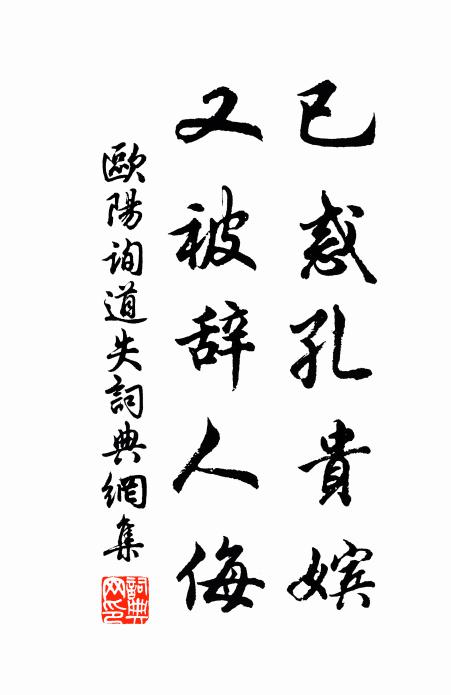 已惑孔貴嬪
又被辞人侮
歐陽询道失詞典網集
詞典網印